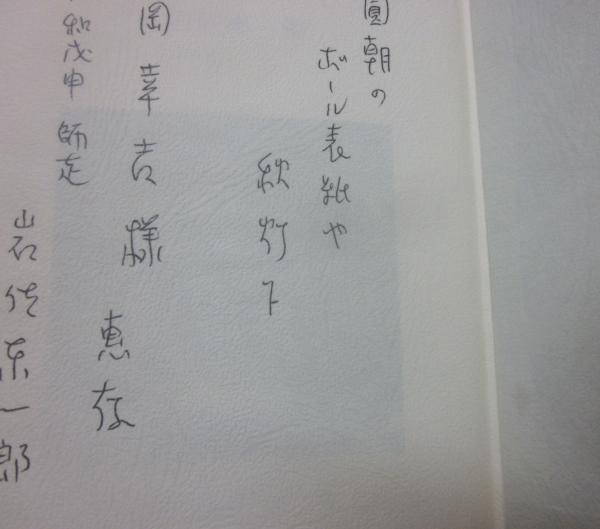 圓朝の
ボール表紙や
秋灯下
岡幸吉様
恵存
和戊申 師走
岩佐東一郎